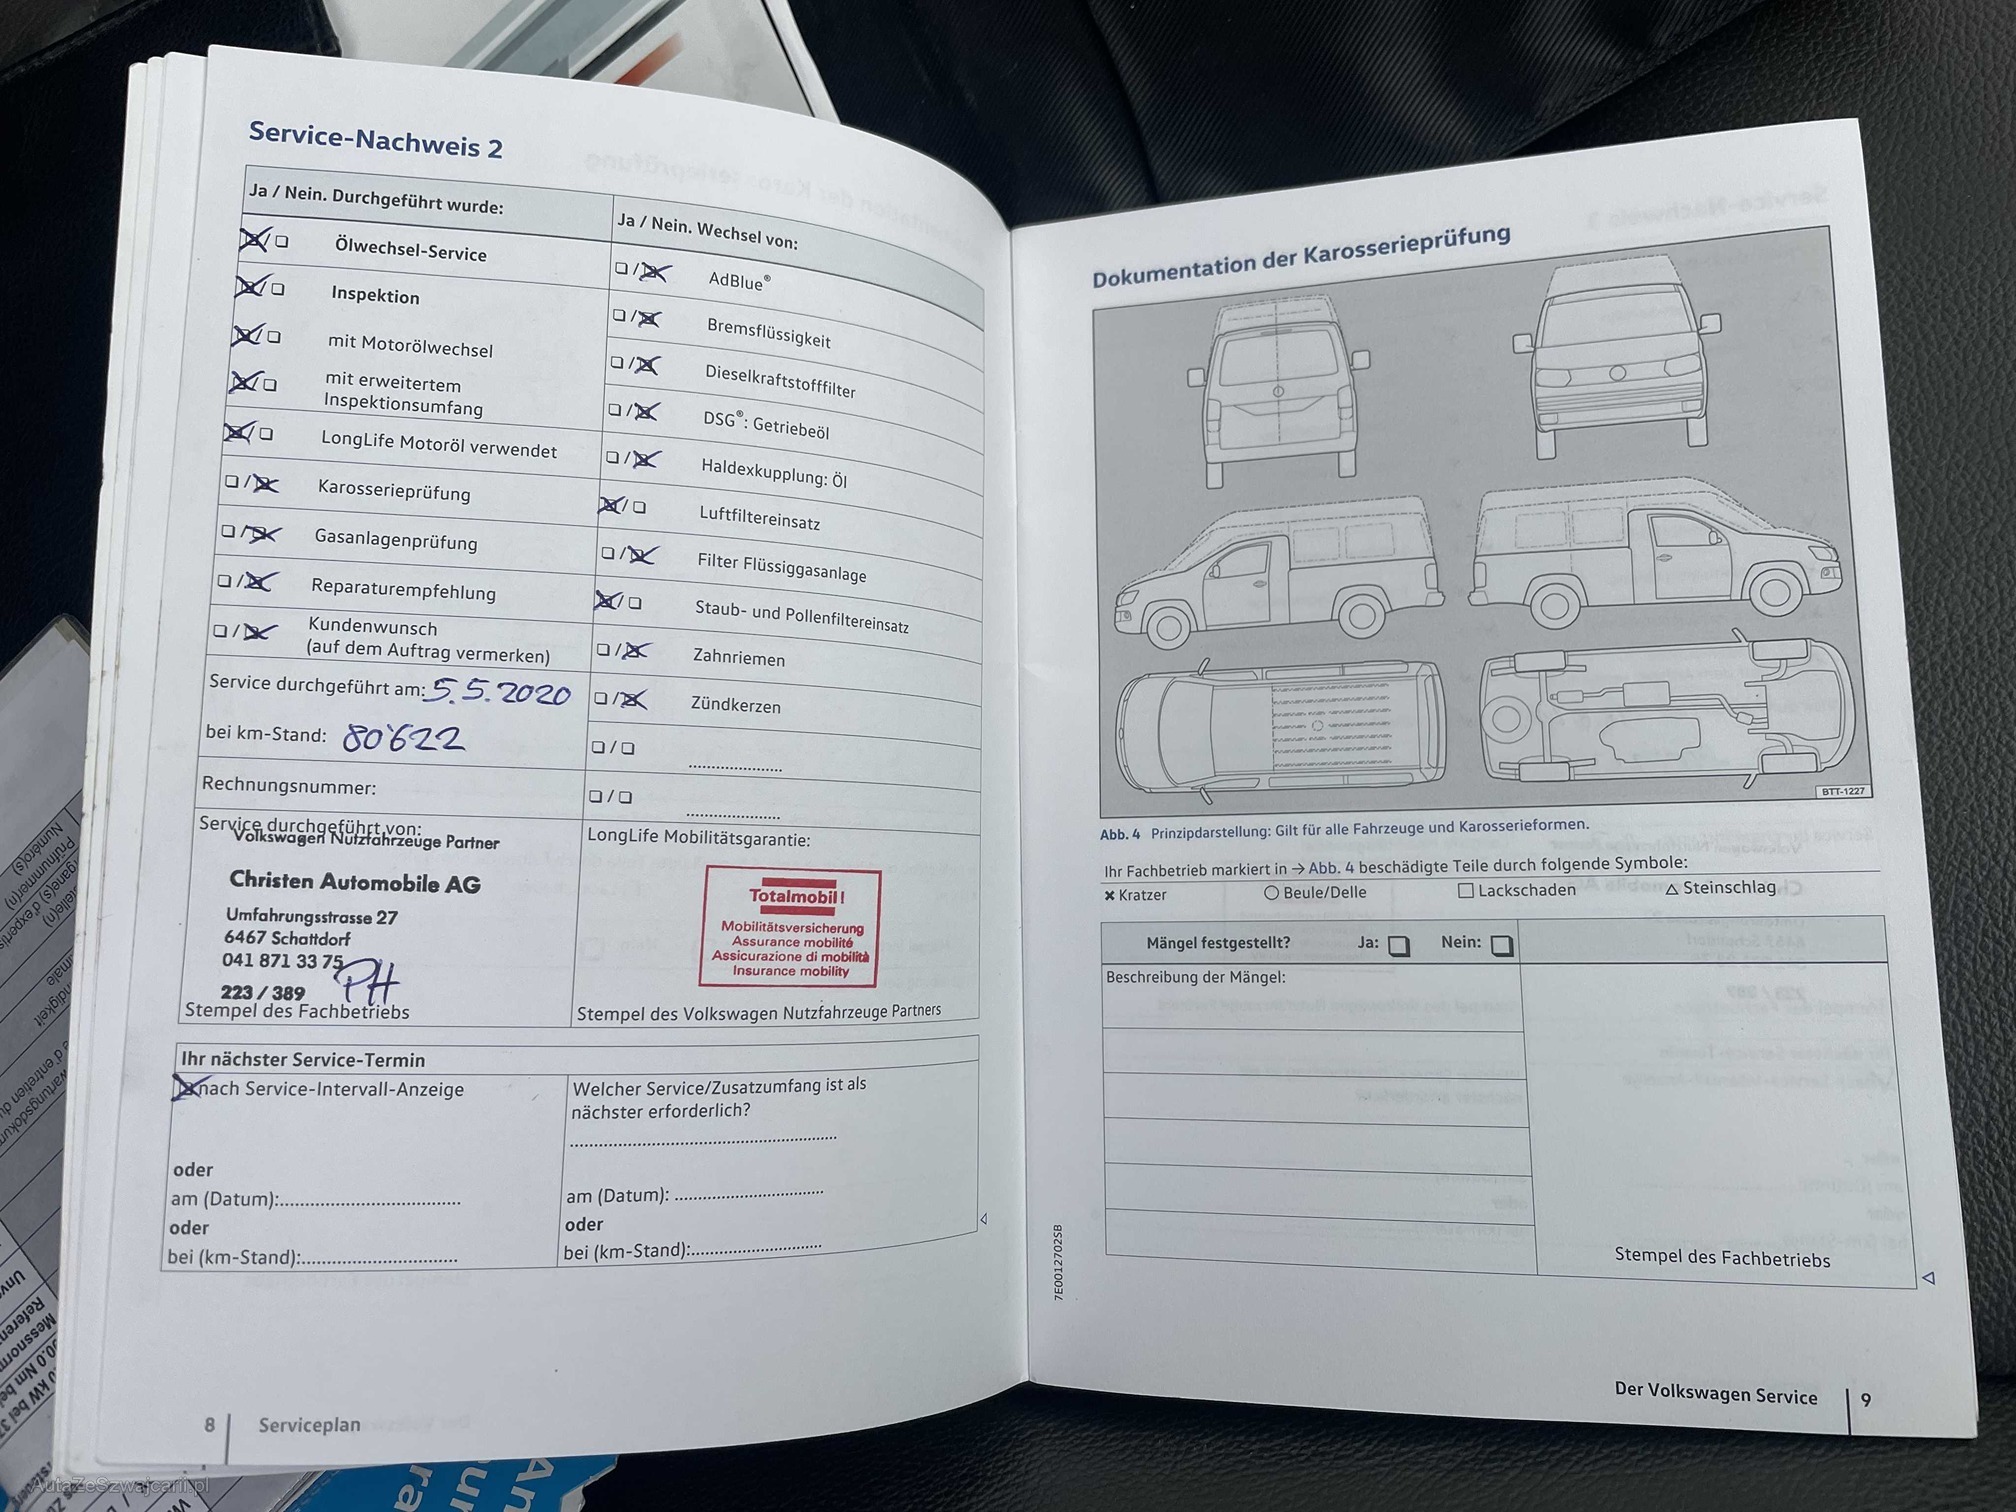 Service-Nachweis 2
Ja / Nein. Durchgeführt wurde:
Ölwechsel-Service
Inspektion
mit Motorölwechsel
mit erweitertem
Inspektionsumfang
LongLife Motoröl verwendet
Karosserieprüfung
Gasanlagenprüfung
Reparaturempfehlung
Kundenwunsch
(auf dem Auftrag vermerken)
Service durchgeführt am: 5.5.2020
bei km-Stand: 80'622
Rechnungsnummer:
Service durchgeführt von:
Volkswagen Nutzfahrzeuge Partner
Christen Automobile AG
Umfahrungsstrasse 27
6467 Schattdorf
041 871 33 75
PH
223 / 389
Stempel des Fachbetriebs
Ja / Nein. Wechsel von:
AdBlue®
Bremsflüssigkeit
Dieselkraftstofffilter
DSG®: Getriebeöl
Haldexkupplung: Öl
Luftfiltereinsatz
Filter Flüssiggasanlage
Staub- und Pollenfiltereinsatz
Zahnriemen
Zündkerzen
LongLife Mobilitätsgarantie:
Totalmobil!
Mobilitätsversicherung
Assurance mobilité
Assicurazione di mobilità
Insurance mobility
Stempel des Volkswagen Nutzfahrzeuge Partners
Ihr nächster Service-Termin
nach Service-Intervall-Anzeige
oder
am (Datum):
oder
bei (km-Stand):
Welcher Service/Zusatzumfang ist als
nächster erforderlich?
am (Datum):
oder
bei (km-Stand):
8 Serviceplan
Dokumentation der Karosserieprüfung
BTT-1227
Abb. 4 Prinzipdarstellung: Gilt für alle Fahrzeuge und Karosserieformen.
Ihr Fachbetrieb markiert in → Abb. 4 beschädigte Teile durch folgende Symbole:
Kratzer Beule/Delle Lackschaden Steinschlag
Mängel festgestellt? Ja: Nein:
Beschreibung der Mängel:
Stempel des Fachbetriebs
7E0012702SB
Der Volkswagen Service 9
AutaZeSzwajcarii.pl